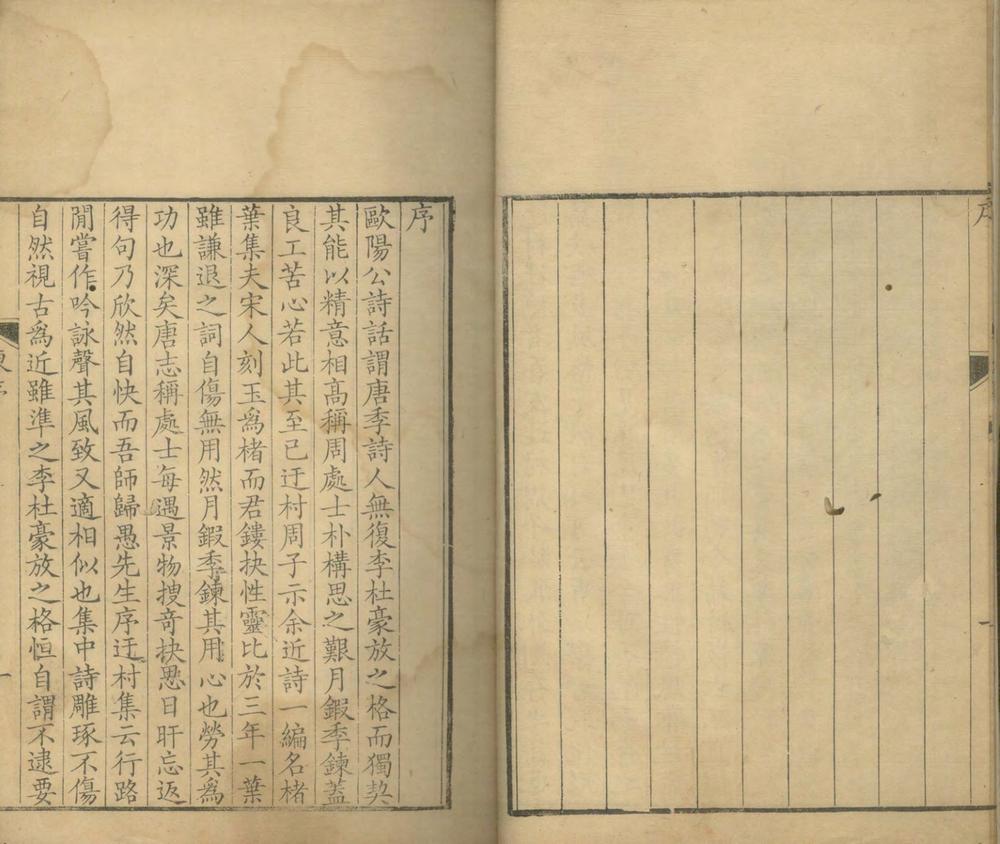 序
歐陽公詩話謂唐季詩人無復李杜豪放之格而獨契
其能以精意相高稱周處士朴構思之艱月鍜季鍊蓋
良工苦心若此其至已迂村周子示余近詩一編名楮
葉集夫宋人刻玉爲楮而君鏤抉性靈比於三年一葉
雖謙退之詞自傷無用然月鍜季鍊其用心也勞其爲
功也深矣唐志稱處士每遇景物搜奇抉思日旰忘返
得句乃欣然自快而吾師歸愚先生序迂村集云行路
閒嘗作吟詠聲其風致又適相似也集中詩雕琢不傷
自然視古爲近雖準之李杜豪放之格恒自謂不逮要
序
一